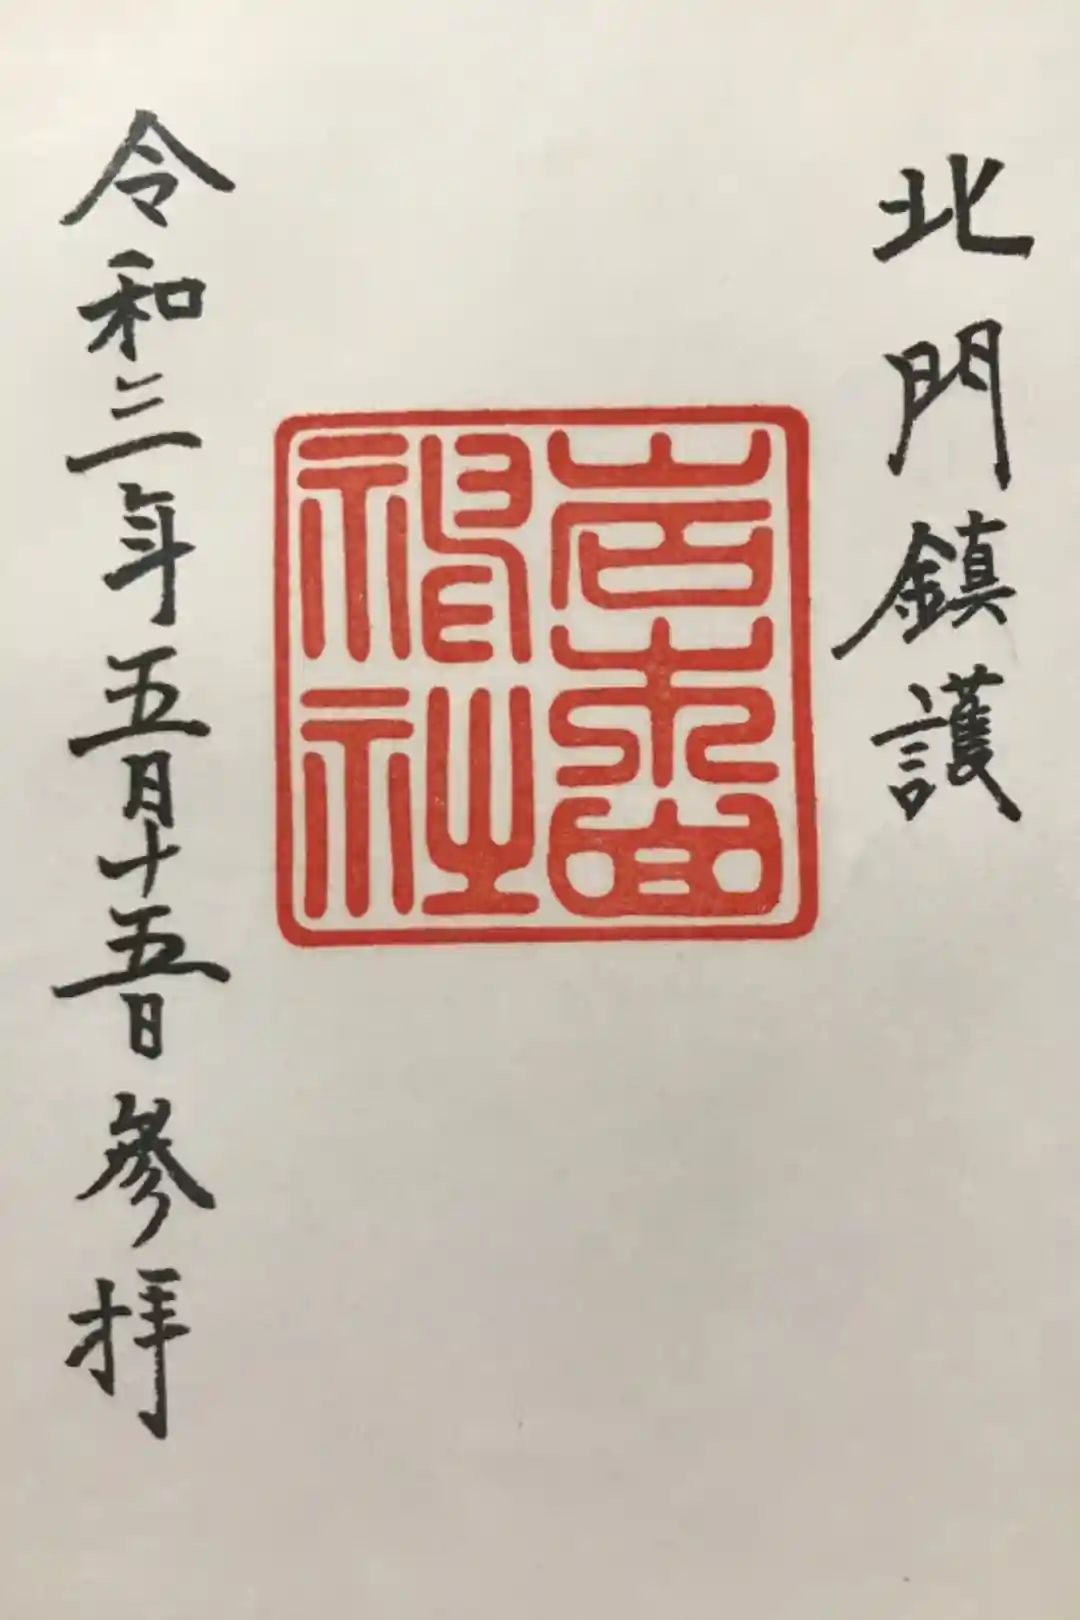 北門鎮護
岩木山
神社
令和三年五月十五日參拝